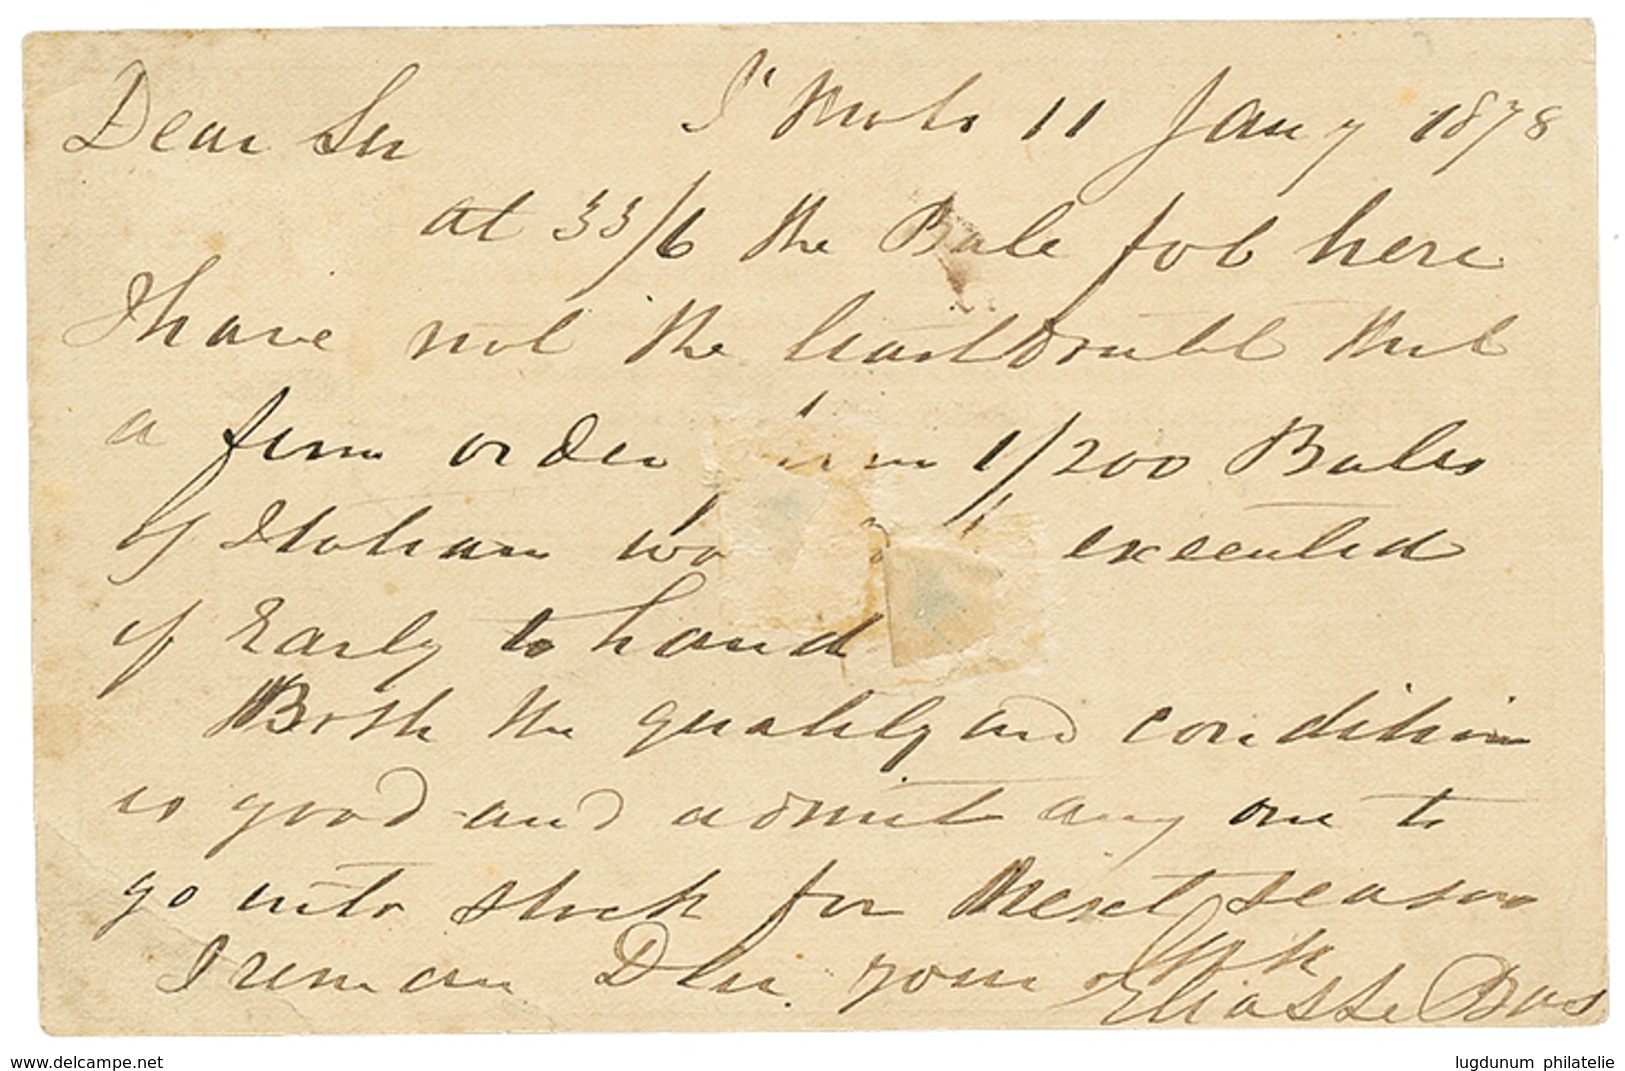 Dear Sir
11 Jany 1878
at 33/6 the Bale fob here
I have not the least doubt that
a firm order 1/200 Bales
of Italian executed
if Early to hand
Both the quality and condition
is good and admit any one to
go into stock for Next season
I remain D Sir yours
www.delcampe.net
lugdunum philatelie